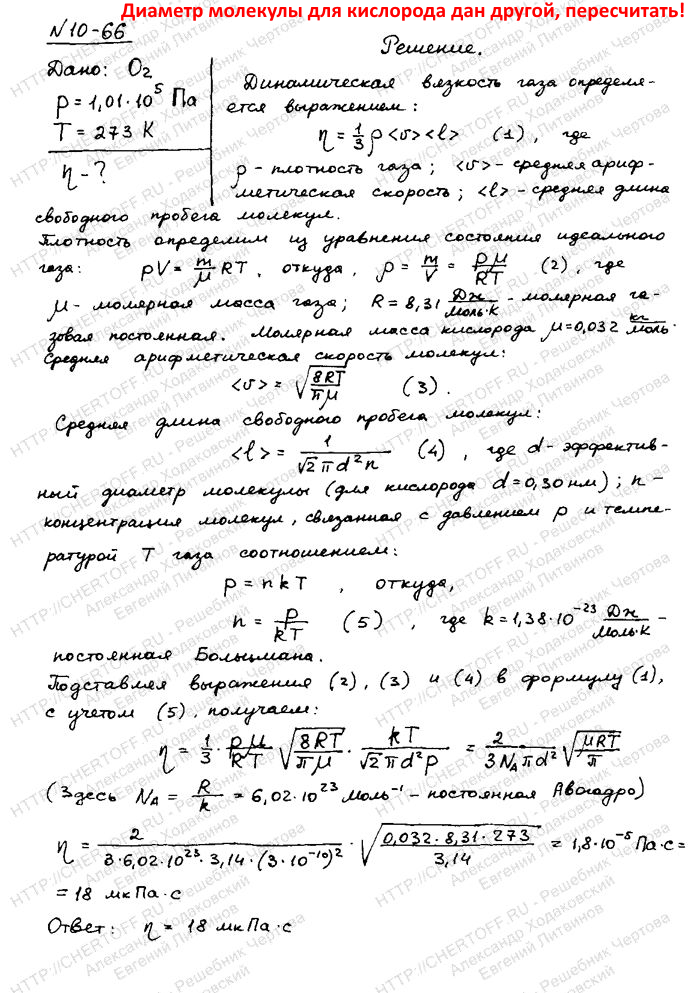 Диаметр молекулы для кислорода дан другой, пересчитать!
№10-66
Решение.
Дано: O₂
p = 1,01·10⁵ Па
T = 273 К
η - ?
Динамическая вязкость газа определя-
ется выражением:
η = 1/3 ρ <v><l> (1), где
ρ - плотность газа; <v> - средняя ариф-
метическая скорость; <l> - средняя длина
свободного пробега молекул.
Плотность определим из уравнения состояния идеального
газа: pV = m/μ RT, откуда, ρ = m/V = pμ/RT (2), где
μ - молярная масса газа; R = 8,31 Дж/моль·К - молярная га-
зовая постоянная. Молярная масса кислорода μ = 0,032 кг/моль.
Средняя арифметическая скорость молекул:
<v> = √(8RT/πμ) (3).
Средняя длина свободного пробега молекул:
<l> = 1/(√2 π d² n) (4), где d - эффектив-
ный диаметр молекулы (для кислорода d = 0,30 нм); n -
концентрация молекул, связанная с давлением p и темпе-
ратурой T газа соотношением:
p = nkT, откуда,
n = p/kT (5), где k = 1,38·10⁻²³ Дж/моль·К -
постоянная Больцмана.
Подставляя выражения (2), (3) и (4) в формулу (1),
с учетом (5), получаем:
η = 1/3 · pμ/RT √(8RT/πμ) · kT/(√2 π d² p) = 2/(3N_A πd²) √(μRT/π)
(Здесь N_A = R/k = 6,02·10²³ моль⁻¹ - постоянная Авогадро)
η = 2/(3·6,02·10²³·3,14·(3·10⁻¹⁰)²) · √(0,032·8,31·273/3,14) = 1,8·10⁻⁵ Па·с =
= 18 мкПа·с
Ответ: η = 18 мкПа·с
HTTP://CHERTOFF.RU - Решебник Чертова
Александр Ходаковский
Евгений Литвинов